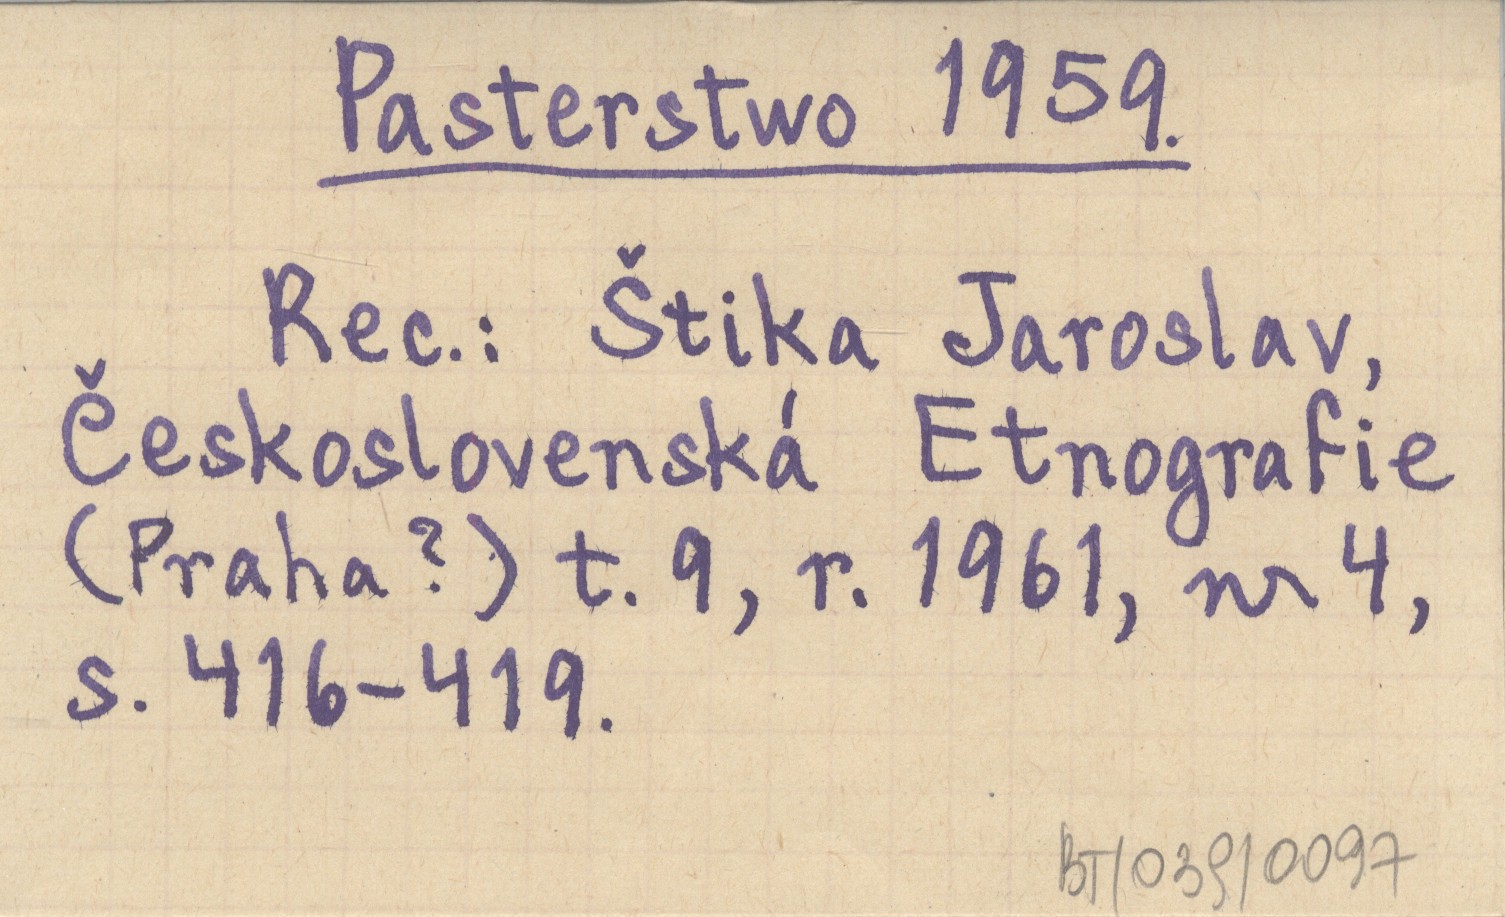 Pasterstwo 1959.
Rec.: Štika Jaroslav,
Československá Etnografie
(Praha?) t. 9, r. 1961, nr 4,
s. 416-419.
BT/039/0097